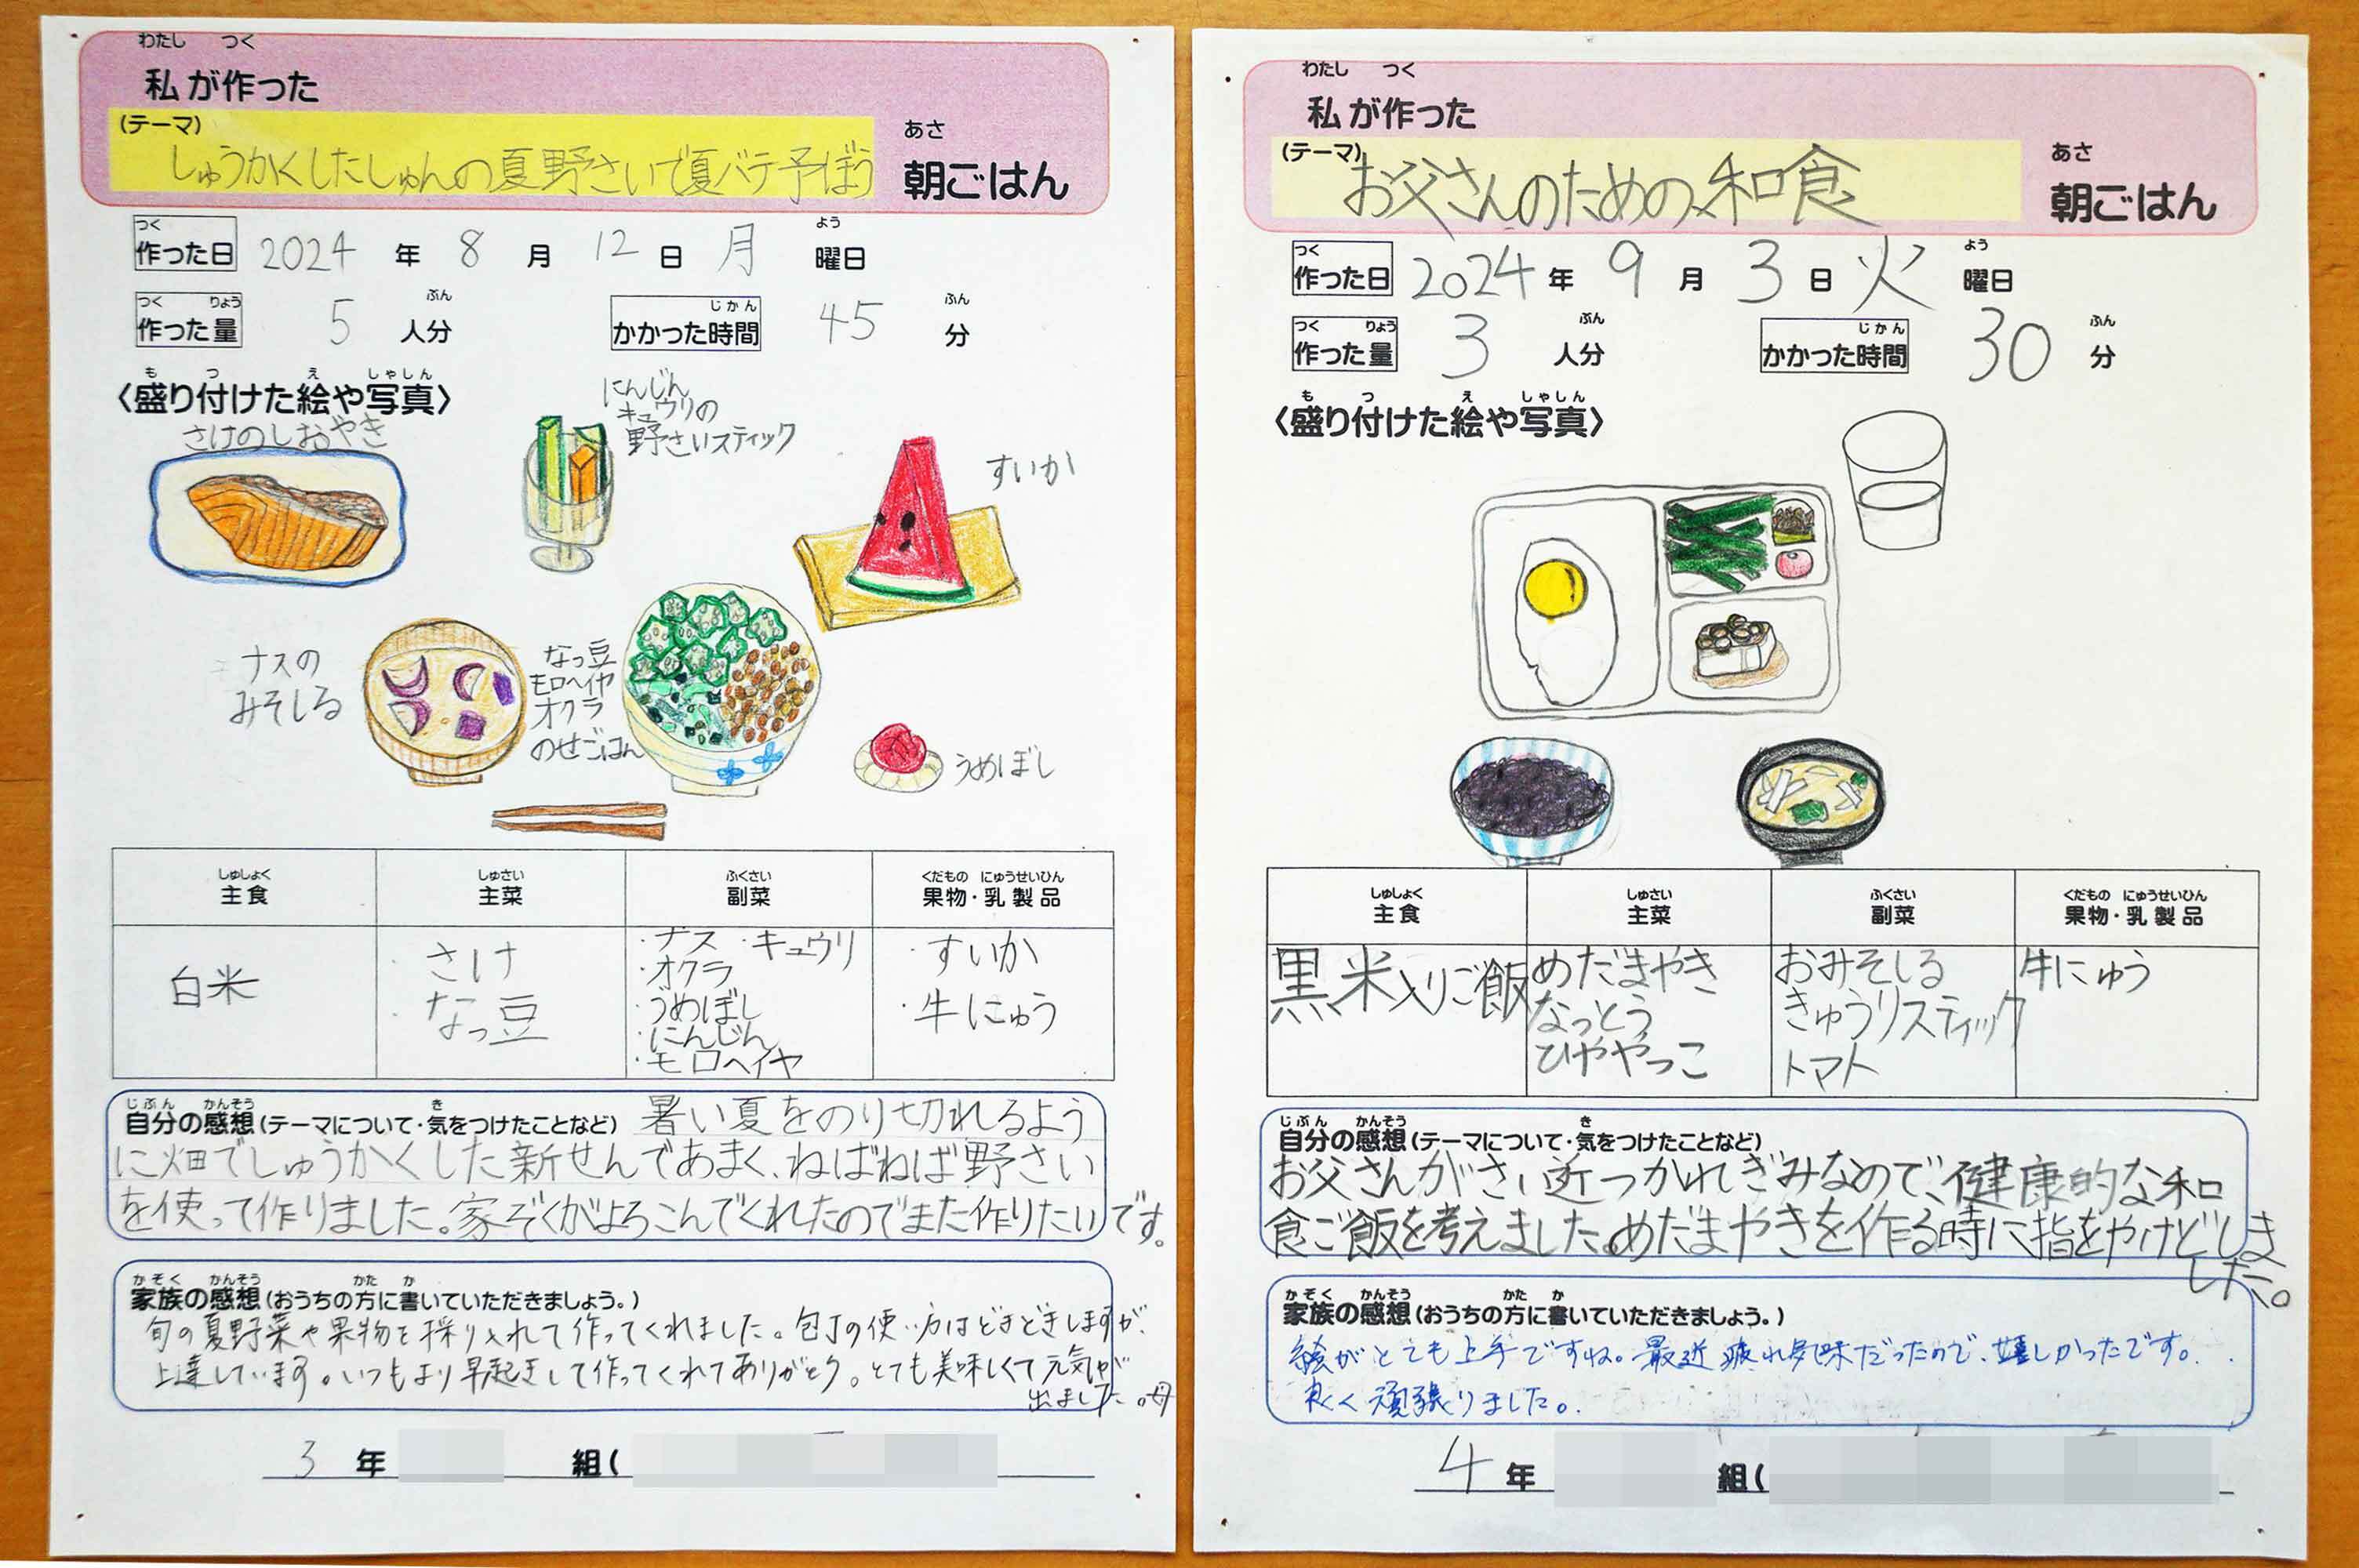 わたし つく
私が作った
(テーマ)
しゅうかくしたしゅんの夏野さいで夏バテ予ぼう
あさ
朝ごはん
つく
作った日 2024 年 8 月 12 日 月 曜日
よう
つく りょう
作った量 5 人分
ぶん
じかん
かかった時間 45 分
ふん
も つ え しゃしん
〈盛り付けた絵や写真〉
さけのしおやき
にんじん
キュウリの
野さいスティック
すいか
ナスの
みそしる
なっ豆
モロヘイヤ
オクラ
のせごはん
うめぼし
しゅしょく しゅさい ふくさい くだもの にゅうせいひん
主食 主菜 副菜 果物・乳製品
白米
・さけ
・なっ豆
・ナス ・キュウリ
・オクラ
・うめぼし
・にんじん
・モロヘイヤ
・すいか
・牛にゅう
じぶん かんそう き
自分の感想(テーマについて・気をつけたことなど) 暑い夏をのり切れるよう
に畑でしゅうかくした新せんであまく、ねばねば野さい
を使って作りました。家ぞくがよろこんでくれたのでまた作りたいです。
かぞく かんそう かた か
家族の感想(おうちの方に書いていただきましょう。)
旬の夏野菜や果物を採り入れて作ってくれました。包丁の使い方はどきどきしますが、
上達しています。いつもより早起きして作ってくれてありがとう。とても美味しくて元気が
出ました。母
3 年 組(
わたし つく
私が作った
(テーマ)
お父さんのための和食
あさ
朝ごはん
つく
作った日 2024 年 9 月 3 日 火 曜日
よう
つく りょう
作った量 3 人分
ぶん
じかん
かかった時間 30 分
ふん
も つ え しゃしん
〈盛り付けた絵や写真〉
しゅしょく しゅさい ふくさい くだもの にゅうせいひん
主食 主菜 副菜 果物・乳製品
黒米入りご飯
めだまやき
なっとう
ひややっこ
おみそしる
きゅうりスティック
トマト
牛にゅう
じぶん かんそう き
自分の感想(テーマについて・気をつけたことなど)
お父さんがさい近つかれぎみなので、健康的な和
食ご飯を考えました。めだまやきを作る時に指をやけどしま
した。
かぞく かんそう かた か
家族の感想(おうちの方に書いていただきましょう。)
絵がとても上手ですね。最近疲れ気味だったので、嬉しかったです。
良く頑張りました。
4 年 組(